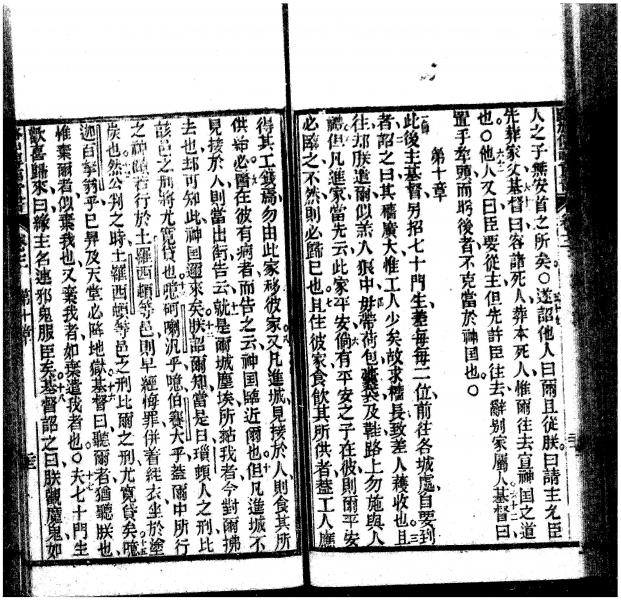 人之子無安首之所矣〇遂詔他人曰爾且從朕曰請主允臣
先葬家父基督曰容諸死人葬本死人惟爾往去宣神國之道
也〇他人又曰臣要從主但先許臣往去辭别家屬人基督曰
置手犂頭而眄後者不克當於神國也〇
第十章
此後主基督另招七十門生差每每二位前往各城處自要到
者詔之曰其穡廣大惟工人少矣故求穡長致差人穫收也且
往却朕遣爾似羔入狼中毋帶荷包囊及鞋路上勿施與人
禮但凡進家當先云此家平安倘有平安之子在彼則爾平安
必臨之不然則必歸已也且住彼家食飲其所供者蓋工人應
得其工錢焉勿由此家移彼家又凡進城見接於人則食其所
供爾必醫在彼有病者而告之云神國臨近爾也但凡進城不
見接於人則當出街告云就是爾城塵埃所沾我者今對爾拂
去也却可知此神國邇來矣朕詔爾知當是日瑣頓人之刑比
彭邑之刑將尤寬貸也噫呵喇汛乎噫伯賽大乎蓋爾中所行
之神蹟若行於土羅西頓等邑則早經悔罪併着䋎衣坐於塗
炭也然公判之時土羅西頓等邑之刑比爾之刑尤寬貸矣噫
迦百拏翁乎已昇及天堂必降地獄基督曰聽爾者猶聽朕也
惟棄爾者似棄我也又棄我者如棄遣我者也〇夫七十門生
歡喜歸來曰緣主名連邪鬼服臣矣基督詔之曰朕觀魔鬼如